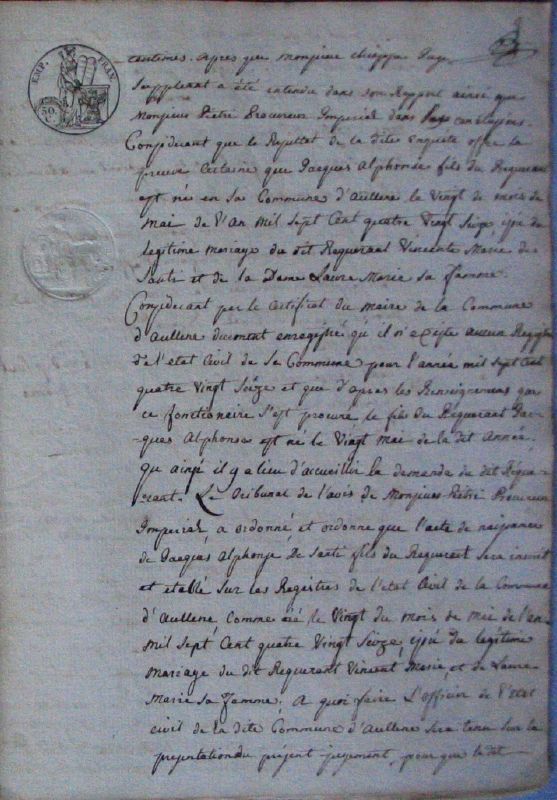 EMP. FRAN.
50. C.
centimes. Après que Monsieur chieppa Juge
Suppleant a été entendu dans son Rapport ainsi que
Monsieur Pietri Procureur Imperial dans Ses conclusions.
Considerant que le Resultat de la dite Enquete offre la
preuve Certaine que Jacques Alphonse fils du Requerant
est né en sa Commune d'Aullene le Vingt de mois de
Mai de l'an Mil Sept Cent quatre Vingt Seize, issu du
legitime mariage du dit Requerant Vincente Marie de
Sarti et de la Dame Laure Marie sa famme.
Considerant par le Certificat du Maire de la Commune
d'Aullene dument enregistré qu'il n'existe aucun Registre
de l'etat Civil de Sa Commune pour l'année mil sept Cent
quatre Vingt Seize et que d'après les Renseignemens que
ce fonctionaire S'est procuré, le fils du Requerant Jac-
-ques Alphonse est né le Vingt Mai de la dit Année.
Qu'ainsi il y a lieu d'accueillir la demande de dit Reque-
-rant. Le Tribunal de l'avis de Monsieur Pietri Procureur
Imperial, a ordonné et ordonne que l'acte de naissance
de Jacques Alphonse De Sarti fils du Requerant sera inscrit
et etablé Sur les Registres de l'etat Civil de la Commune
d'Aullene, Comme né le Vingt du mois de Mai de l'an
Mil Sept Cent quatre Vingt Seize, issu du legitime
Mariage du dit Requerant Vincent Marie, et de Laure
Marie Sa famme; A quoi faire L'officier de l'etat
civil de la dite Commune d'Aullene sera tenu Sur la
presentation du présent jugement, pour que le dit